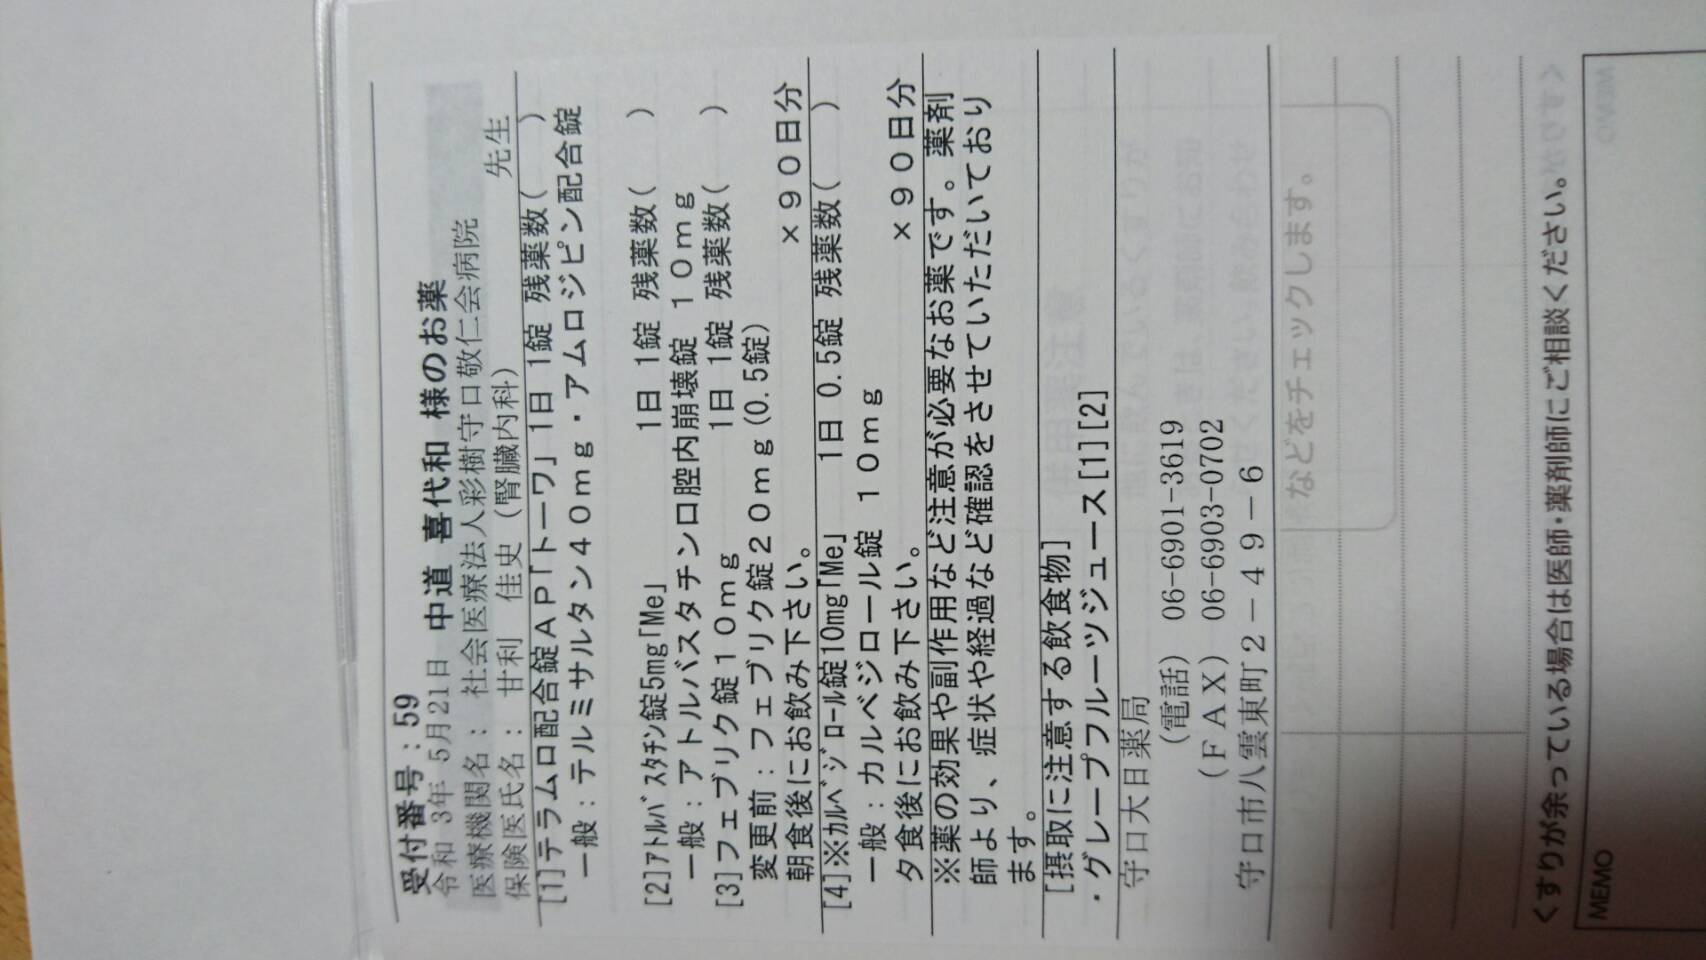 受付番号：59
令和 3年 5月21日 中道 喜代和 様のお薬
医療機関名：社会医療法人彩樹守口敬仁会病院
保険医氏名：甘利 佳史（腎臓内科） 先生
[1]テラムロ配合錠ＡＰ｢トーワ｣ 1日 1錠 残薬数( )
一般：テルミサルタン４０ｍｇ・アムロジピン配合錠
[2]ｱﾄﾙﾊﾞｽﾀﾁﾝ錠5mg｢Me｣ 1日 1錠 残薬数( )
一般：アトルバスタチン口腔内崩壊錠 １０ｍｇ
[3]フェブリク錠１０ｍｇ 1日 1錠 残薬数( )
変更前：フェブリク錠２０ｍｇ(0.5錠)
朝食後にお飲み下さい。 ×９０日分
[4]※ｶﾙﾍﾞｼﾞﾛｰﾙ錠10mg｢Me｣ 1日 0.5錠 残薬数( )
一般：カルベジロール錠 １０ｍｇ
夕食後にお飲み下さい。 ×９０日分
※薬の効果や副作用など注意が必要なお薬です。薬剤
師より、症状や経過など確認をさせていただいており
ます。
[摂取に注意する飲食物]
・グレープフルーツジュース[1][2]
守口大日薬局
（電話） 06-6901-3619
（ＦＡＸ） 06-6903-0702
守口市八雲東町２－４９－６
などをチェックします。
くすりが余っている場合は医師・薬剤師にご相談ください。
MEMO